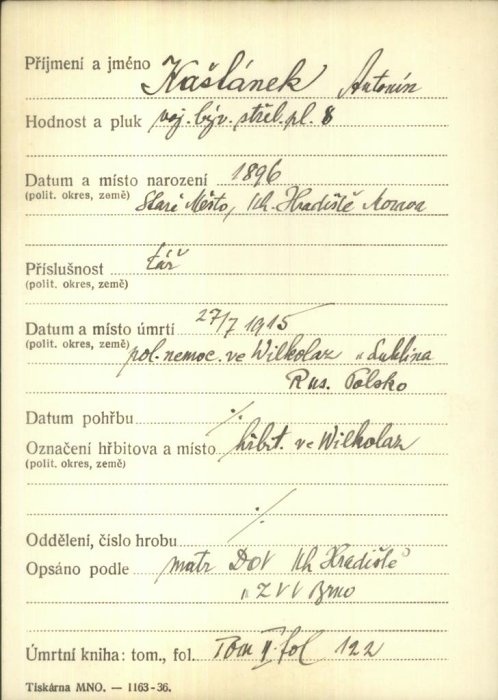 Příjmení a jméno Kašlánek Antonín
Hodnost a pluk voj. býv. střel. pl. 8
Datum a místo narození 1896
(polit. okres, země) Staré Město, Uh. Hradiště Morava
Příslušnost táž
(polit. okres, země)
Datum a místo úmrtí 27/7 1915
(polit. okres, země) pol. nemoc. ve Wilkolaz u Lublina
Rus. Polsko
Datum pohřbu ·/·
Označení hřbitova a místo hřbit. ve Wilkolaz
(polit. okres, země)
·/·
Oddělení, číslo hrobu
Opsáno podle matr DOV Uh Hradiště
" ZVV Brno
Úmrtní kniha: tom., fol. Tom II. fol 122
Tiskárna MNO. — 1163-36.